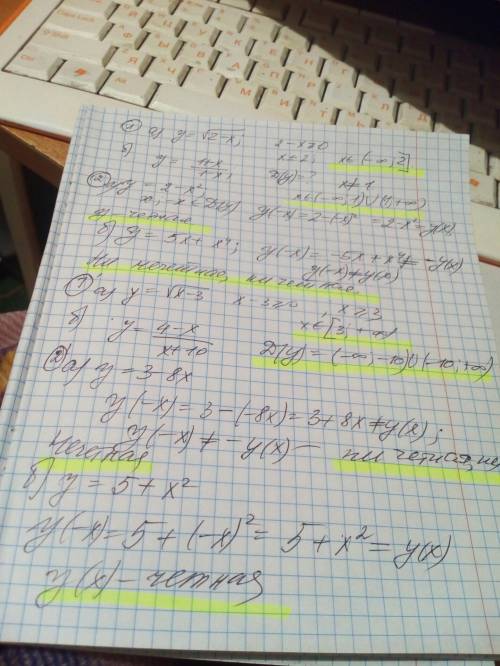 ① а) y = √2-x; 2-x≥0
x≤2; x∈(-∞; 2]
б) y = x≠1
x∈(-∞; 1)∪(1; +∞)
② а) y = 2-x²
y(-x) = 2-(-x)² = 2-x² = y(x)
четная
б) y = 5x+x⁴; y(-x) = -5x+x⁴ ≠ -y(x)
y(-x)≠y(x)
Ни нечетная, ни четная.
① а) y = √x-3 x-3≥0; x≥3
x∈[3; +∞)
б) y = 4-x / x+10 D(y) = (-∞; -10)∪(-10; +∞)
② а) y = 3-8x
y(-x) = 3-(-8x) = 3+8x ≠ y(x);
y(-x) ≠ -y(x) — ни четная, ни
нечетная
б) y = 5+x²
y(-x) = 5+(-x)² = 5+x² = y(x)
y(x) - четная